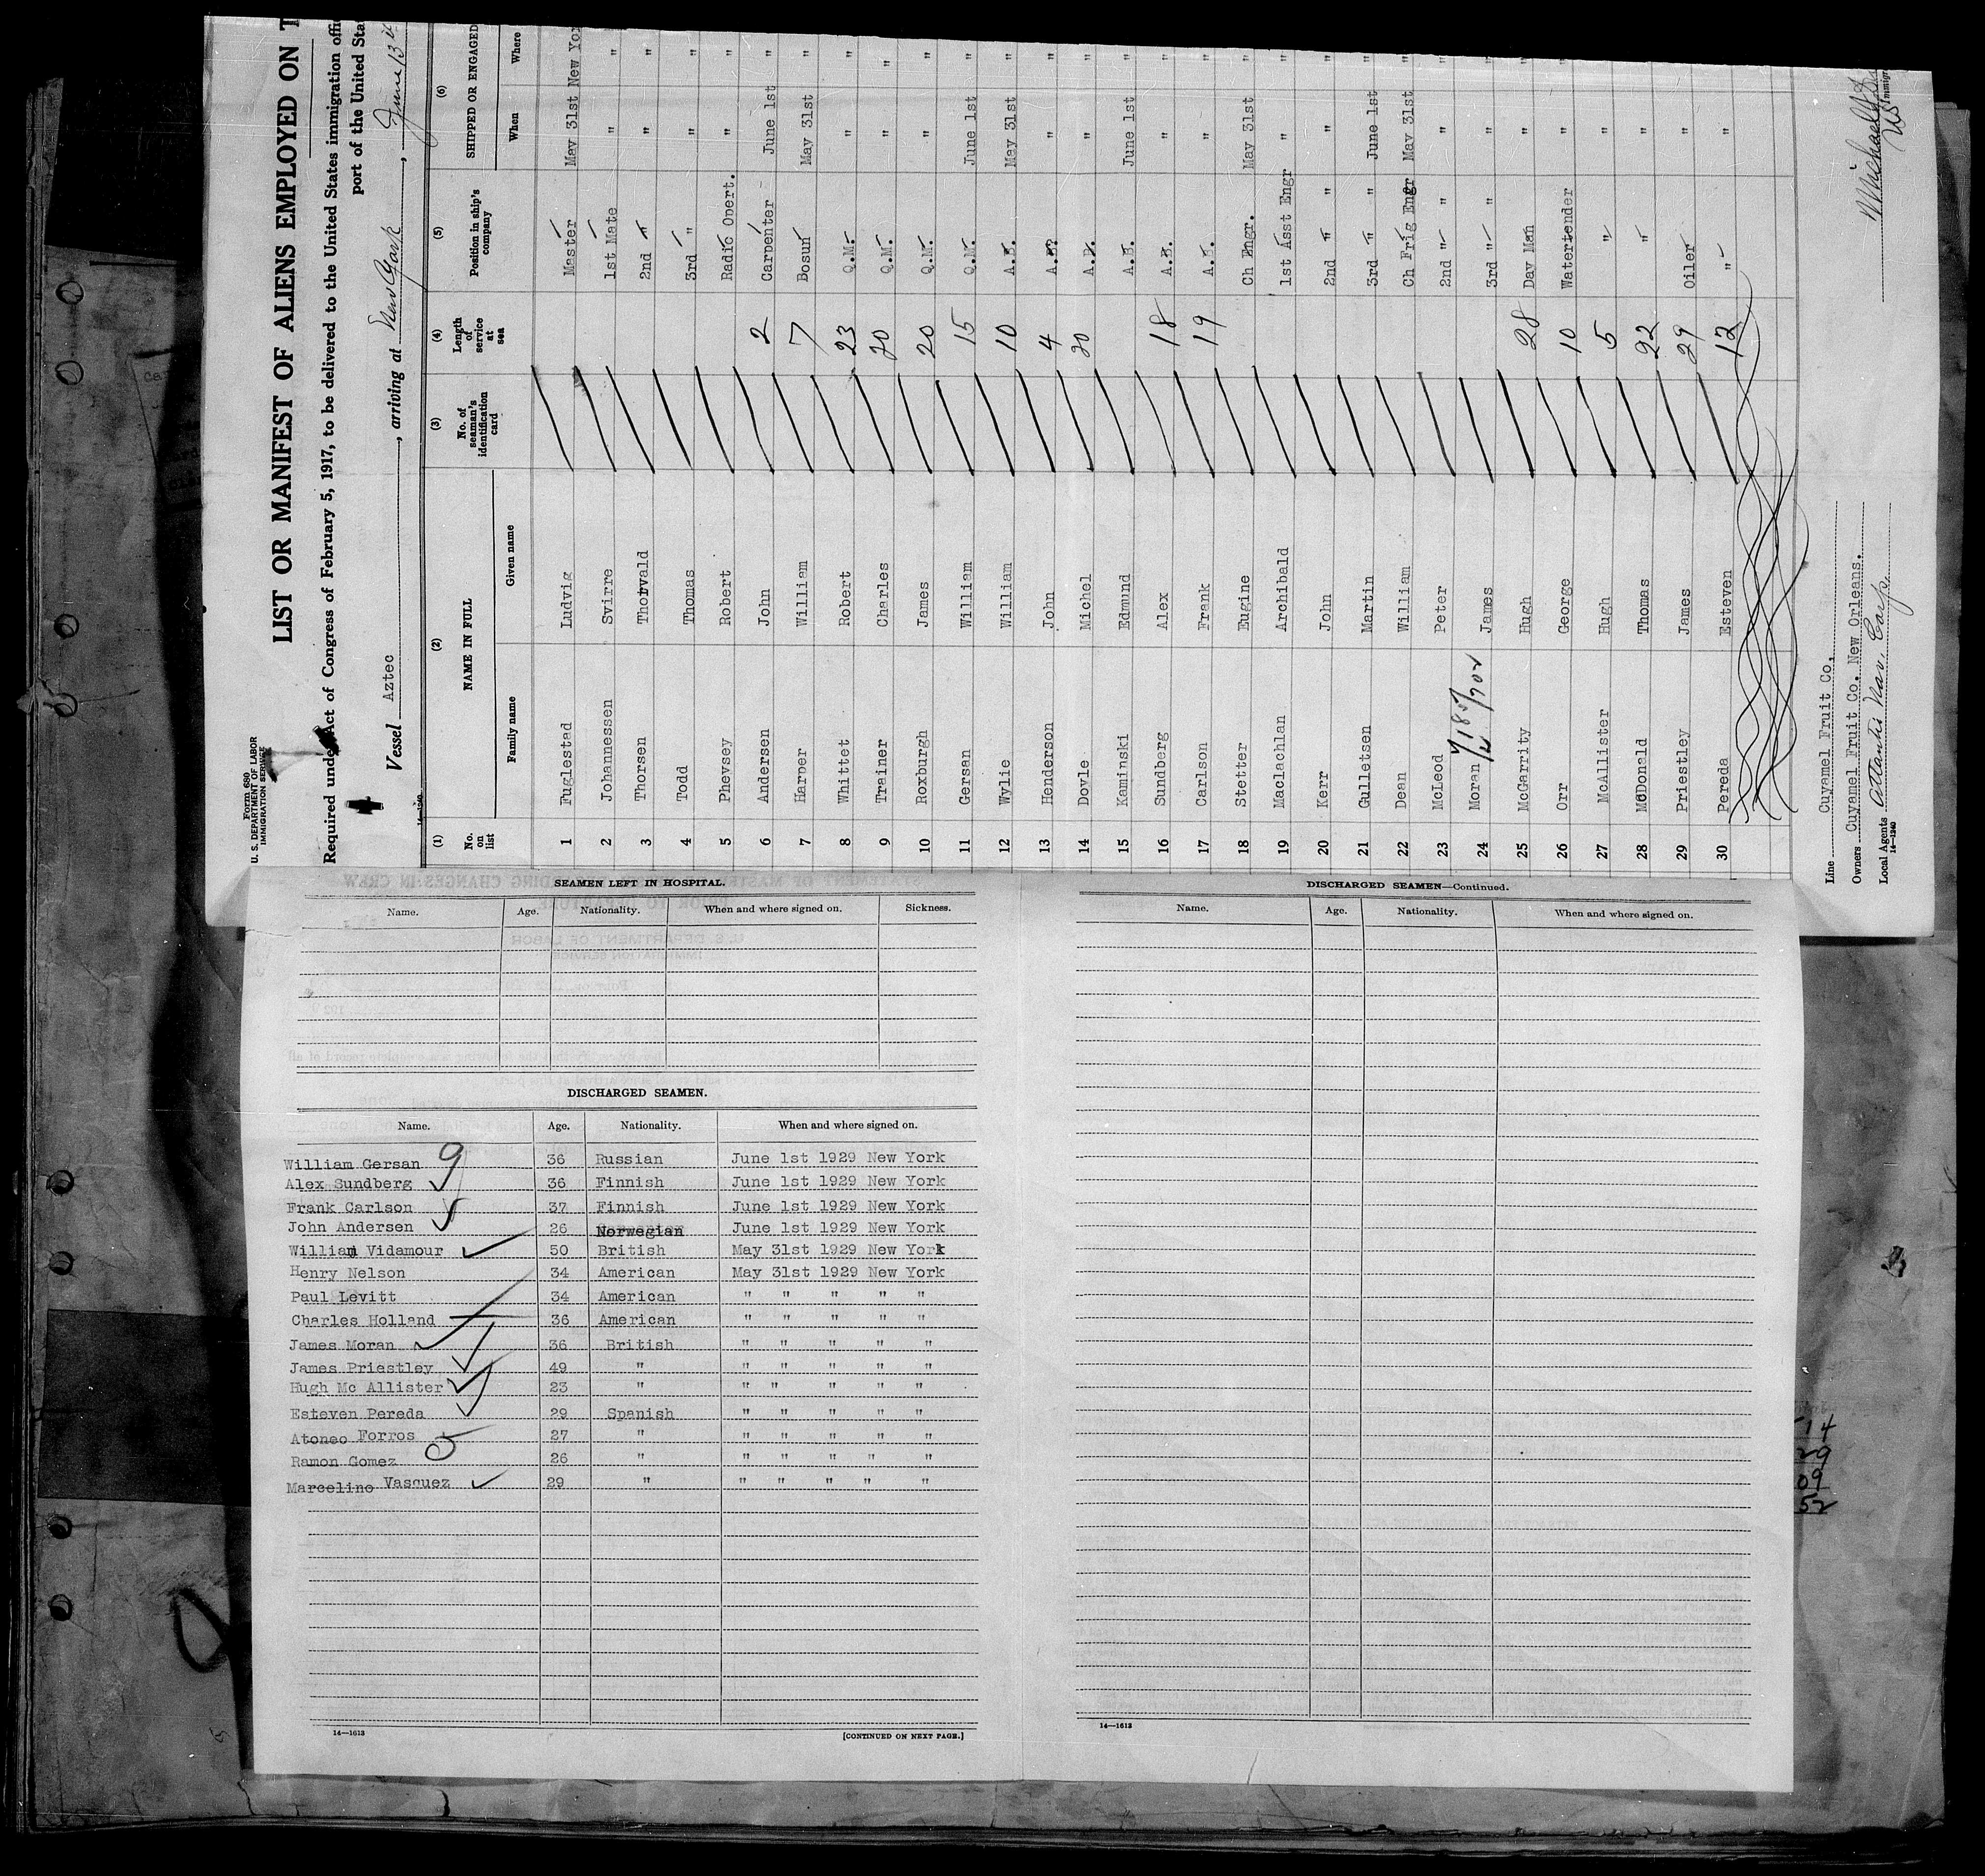 Form 680
U. S. DEPARTMENT OF LABOR
IMMIGRATION SERVICE
LIST OR MANIFEST OF ALIENS EMPLOYED ON T
Required under Act of Congress of February 5, 1917, to be delivered to the United States immigration offi
port of the United Sta
Vessel Aztec, arriving at New York, June 13th
14-1240
(1) (2) (3) (4) (5) (6)
No. on list NAME IN FULL No. of seaman's identification card Length of service at sea Position in ship's company SHIPPED OR ENGAGED
Family name Given name When Where
1 Fuglestad Ludvig Master May 31st New Yor
2 Johannessen Svirre 1st Mate " "
3 Thorsen Thorvald 2nd " " "
4 Todd Thomas 3rd " " "
5 Phevsey Robert Radio Opert. " "
6 Andersen John 2 Carpenter June 1st "
7 Harper William 7 Bosun May 31st "
8 Whittet Robert 23 Q.M. " "
9 Trainer Charles 20 Q.M. " "
10 Roxburgh James 20 Q.M. " "
11 Gersan William 15 Q.M. June 1st "
12 Wylie William 10 A.B. May 31st "
13 Henderson John 4 A.B. " "
14 Doyle Michel 20 A.B. " "
15 Kaminski Edmund A.B. June 1st "
16 Sundberg Alex 18 A.B. " "
17 Carlson Frank 19 A.B. " "
18 Stetter Eugine Ch Engr. May 31st "
19 Maclachlan Archibald 1st Asst Engr " "
20 Kerr John 2nd " " " "
21 Gulletsen Martin 3rd " " June 1st "
22 Dean William Ch Frig Engr May 31st "
23 McLeod Peter 2nd " " " "
24 Moran James 3rd " " " "
25 McGarrity Hugh 28 Day Man " "
26 Orr George 10 Watertender " "
27 McAllister Hugh 5 " " "
28 McDonald Thomas 22 " " "
29 Priestley James 29 Oiler " "
30 Pereda Esteven 12 " " "
Line Cuyamel Fruit Co.
Owners Cuyamel Fruit Co. New Orleans.
Local Agents Atlantic Nav. Corp.
14-1240
Immigr
SEAMEN LEFT IN HOSPITAL.
Name. Age. Nationality. When and where signed on. Sickness.
DISCHARGED SEAMEN.
Name. Age. Nationality. When and where signed on.
William Gersan 36 Russian June 1st 1929 New York
Alex Sundberg 36 Finnish June 1st 1929 New York
Frank Carlson 37 Finnish June 1st 1929 New York
John Andersen 26 Norwegian June 1st 1929 New York
William Vidamour 50 British May 31st 1929 New York
Henry Nelson 34 American May 31st 1929 New York
Paul Levitt 34 American " " " " "
Charles Holland 36 American " " " " "
James Moran 36 British " " " " "
James Priestley 49 " " " " " "
Hugh Mc Allister 23 " " " " " "
Esteven Pereda 29 Spanish " " " " "
Atoneo Forros 27 " " " " " "
Ramon Gomez 26 " " " " " "
Marcelino Vasquez 29 " " " " " "
14—1613
[CONTINUED ON NEXT PAGE.]
DISCHARGED SEAMEN—Continued.
Name. Age. Nationality. When and where signed on.
14—1613
14
29
09
52